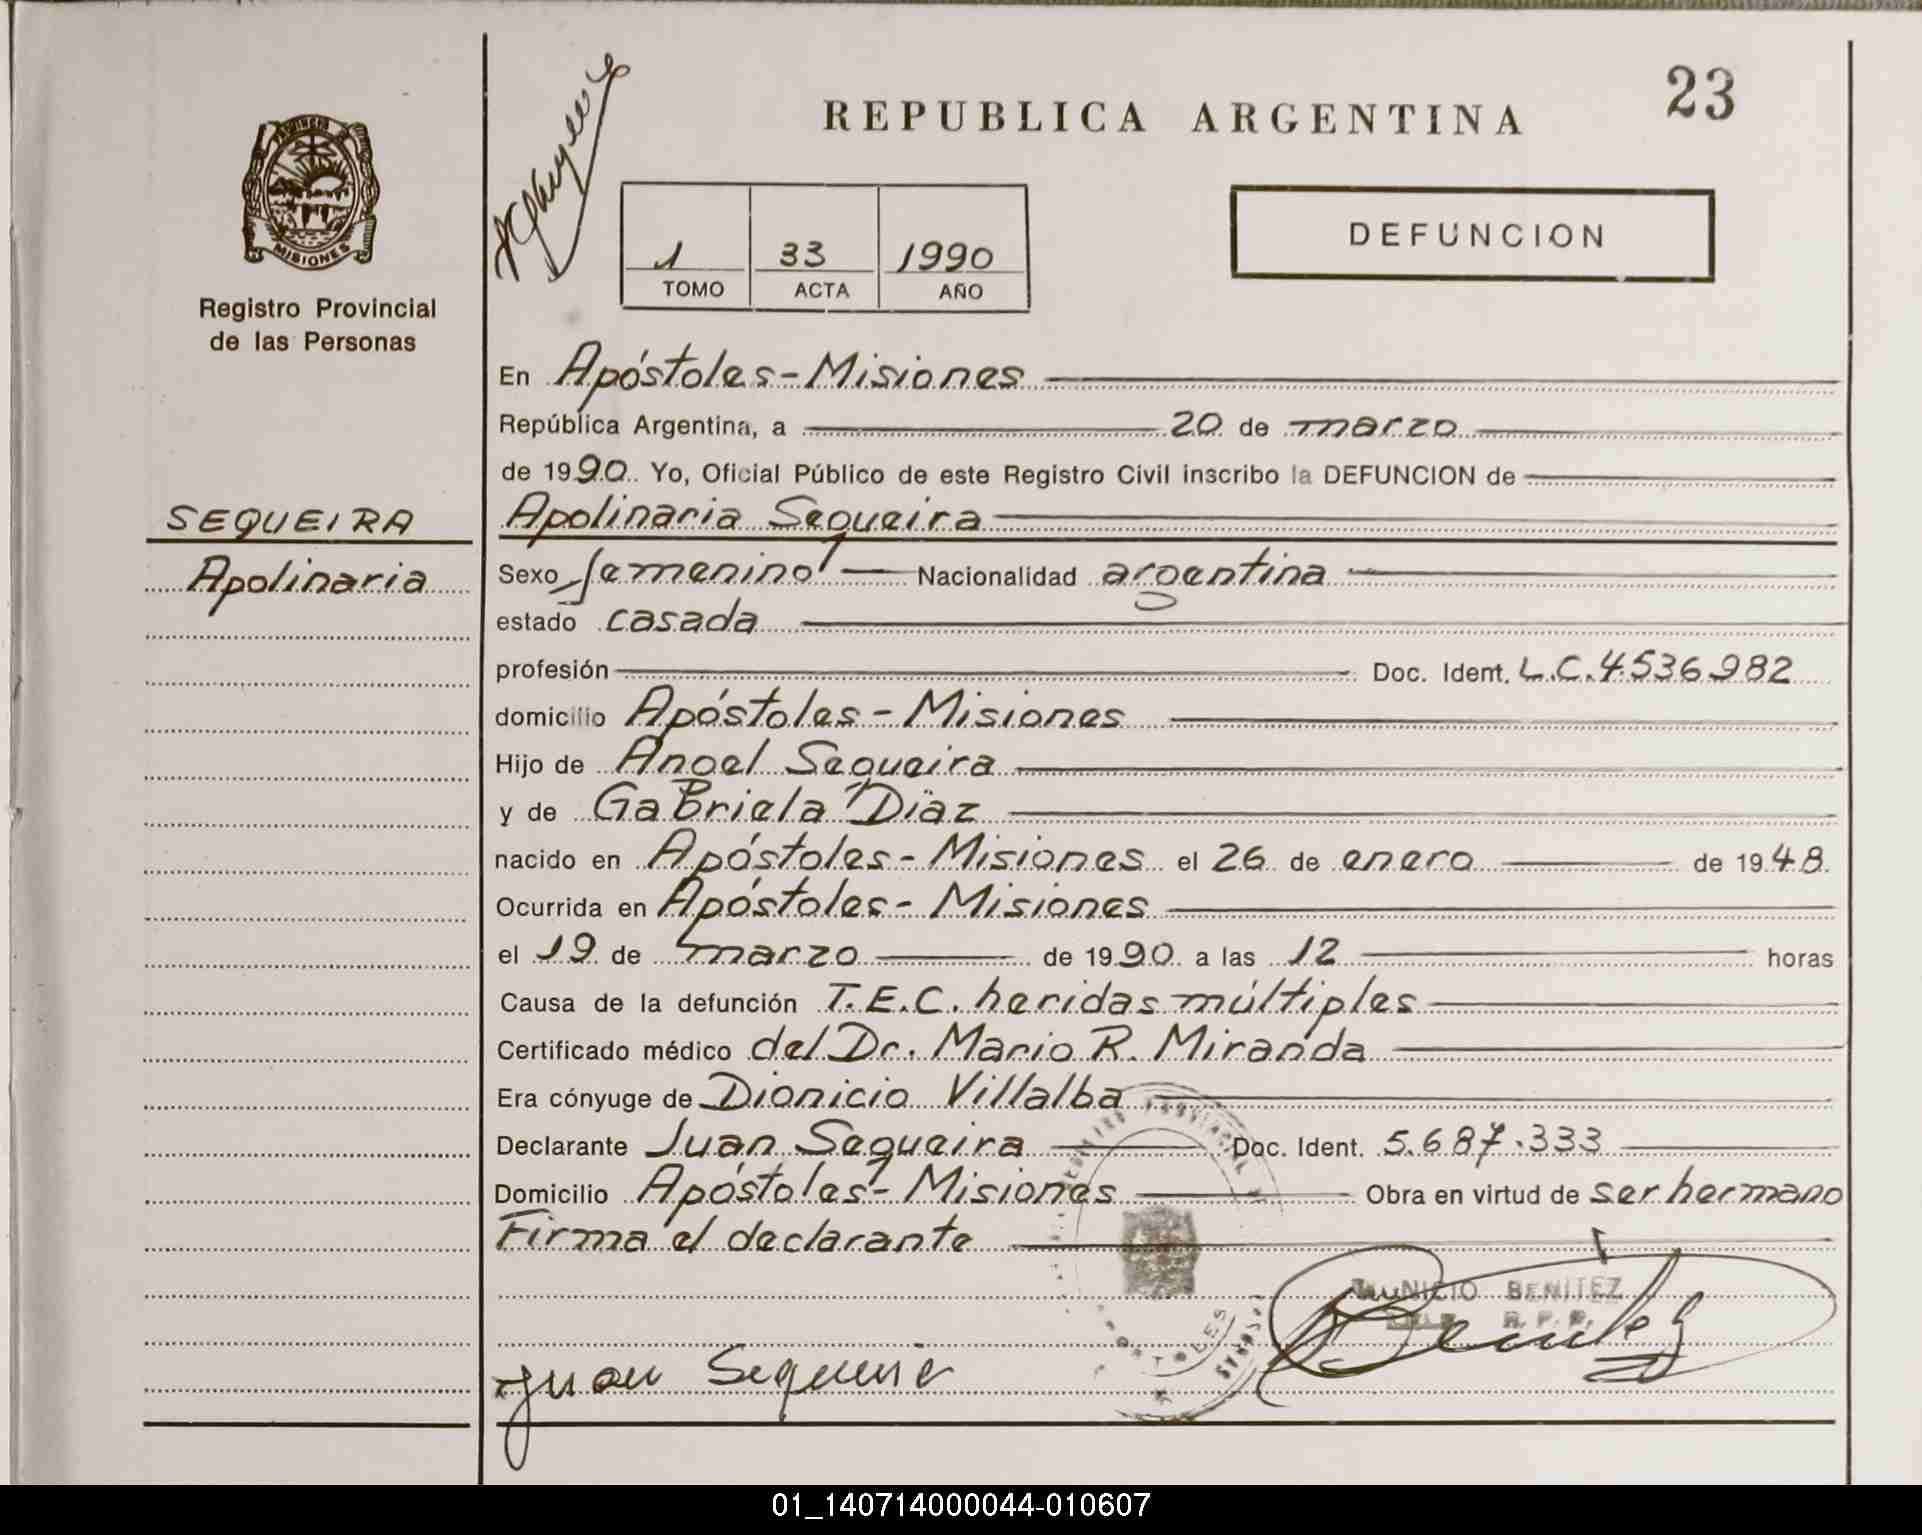 REPUBLICA ARGENTINA
23
PROVINCIA
MISIONES
Registro Provincial
de las Personas
1 33 1990
TOMO ACTA AÑO
DEFUNCION
SEQUEIRA
Apolinaria
En Apóstoles-Misiones
República Argentina, a 20 de marzo
de 1990. Yo, Oficial Público de este Registro Civil inscribo la DEFUNCION de
Apolinaria Sequeira
Sexo femenino Nacionalidad argentina
estado casada
profesión Doc. Ident. L.C.4536982
domicilio Apóstoles-Misiones
Hijo de Angel Sequeira
y de GaBriela Díaz
nacido en Apóstoles-Misiones el 26 de enero de 1948.
Ocurrida en Apóstoles-Misiones
el 19 de marzo de 1990 a las 12 horas
Causa de la defunción T.E.C. heridas múltiples
Certificado médico del Dr. Mario R. Miranda
Era cónyuge de Dionicio Villalba
Declarante Juan Sequeira Doc. Ident. 5.687.333
Domicilio Apóstoles-Misiones Obra en virtud de ser hermano
Firma el declarante
BENITEZ
R. P. P.
APOSTOLES
MISIONES
Juan Sequeira
Benitez
01_140714000044-010607